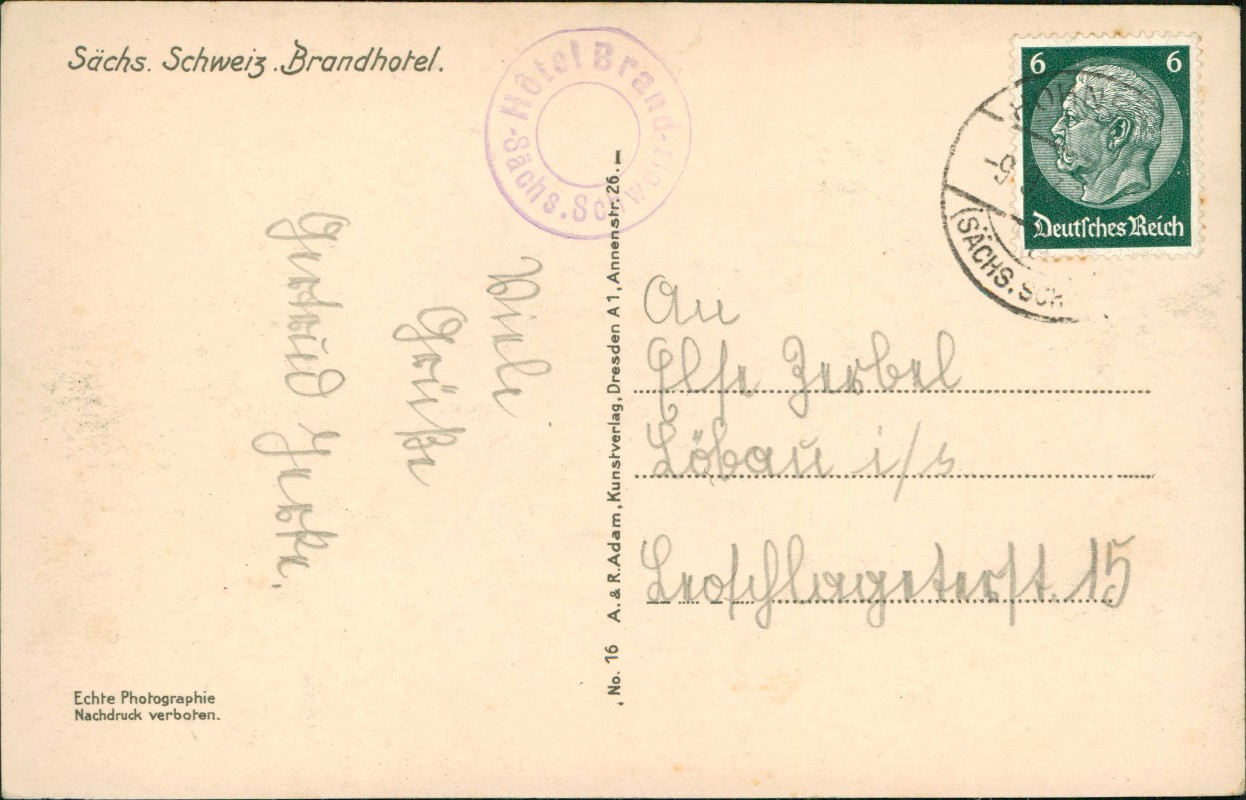 Sächs. Schweiz. Brandhotel.
Hôtel Brand
Sächs. Schweiz
6 6
Deutsches Reich
-9
(SÄCHS. SCH
Viele
Grüße
Gertrud
An
Else Zerbel
Löbau i/s
Leoschlageterstr. 15
No. 16 A. & R. Adam, Kunstverlag, Dresden A 1, Annenstr. 26.
Echte Photographie
Nachdruck verboten.